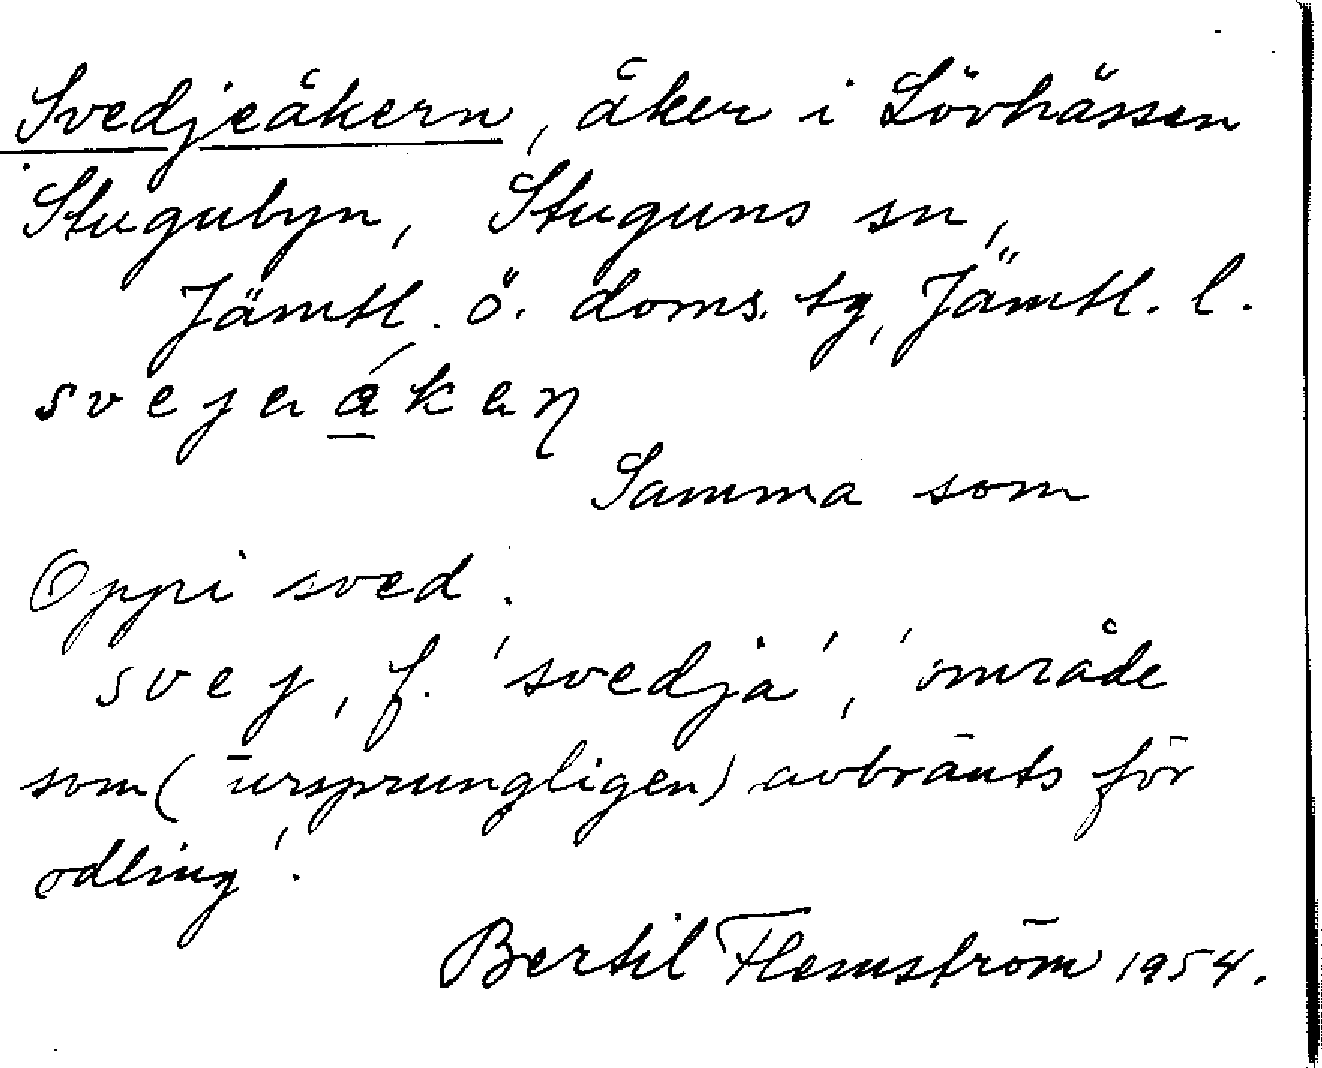 Svedjeåkern, åker i Lövhåssen
Stugubyn, Stuguns sn,
Jämtl. ö. doms. tg, Jämtl. l.
svejaákaɳ
Samma som
Oppi sved.
svej, f. 'svedja', 'område
som (ursprungligen) avbränts för
odling'.
Bertil Flemström 1954.